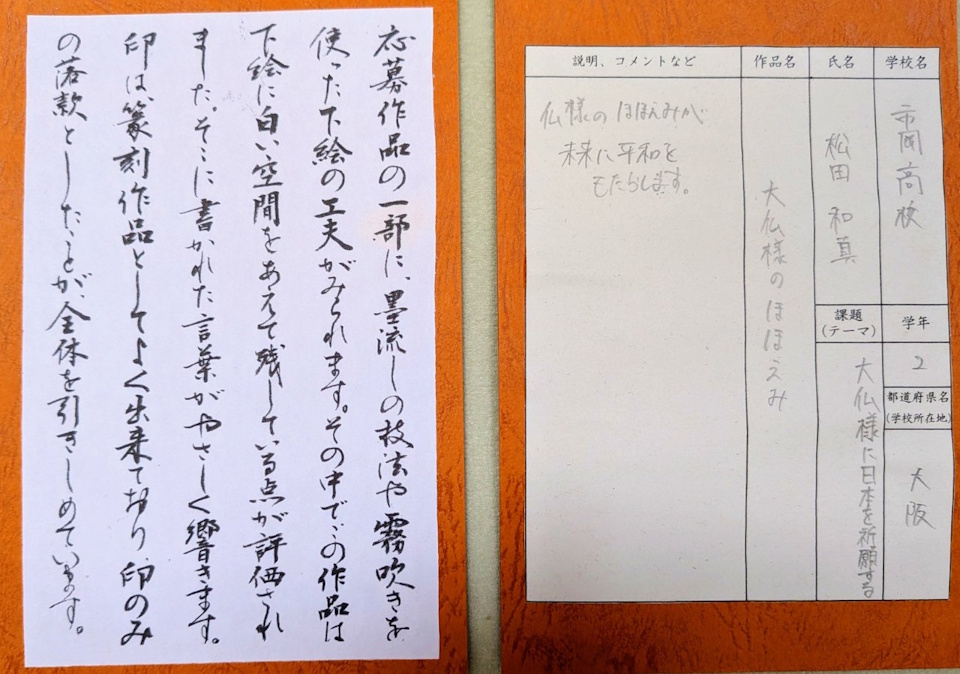 応募作品の一部に、墨流しの技法や霧吹きを
使った下絵の工夫がみられます。その中でこの作品は
下絵に白い空間をあえて残している点が評価され
ました。そこに書かれた言葉がやさしく響きます。
印は、篆刻作品としてよく出来ており、印のみ
の落款としたことが、全体を引きしめています。
学校名
市岡高校
学年
2
都道府県名
(学校所在地)
大阪
氏名
松田 和真
課題
(テーマ)
大仏様に日本を祈願する
作品名
大仏様のほほえみ
説明、コメントなど
仏様のほほえみが
未来に平和を
もたらします。